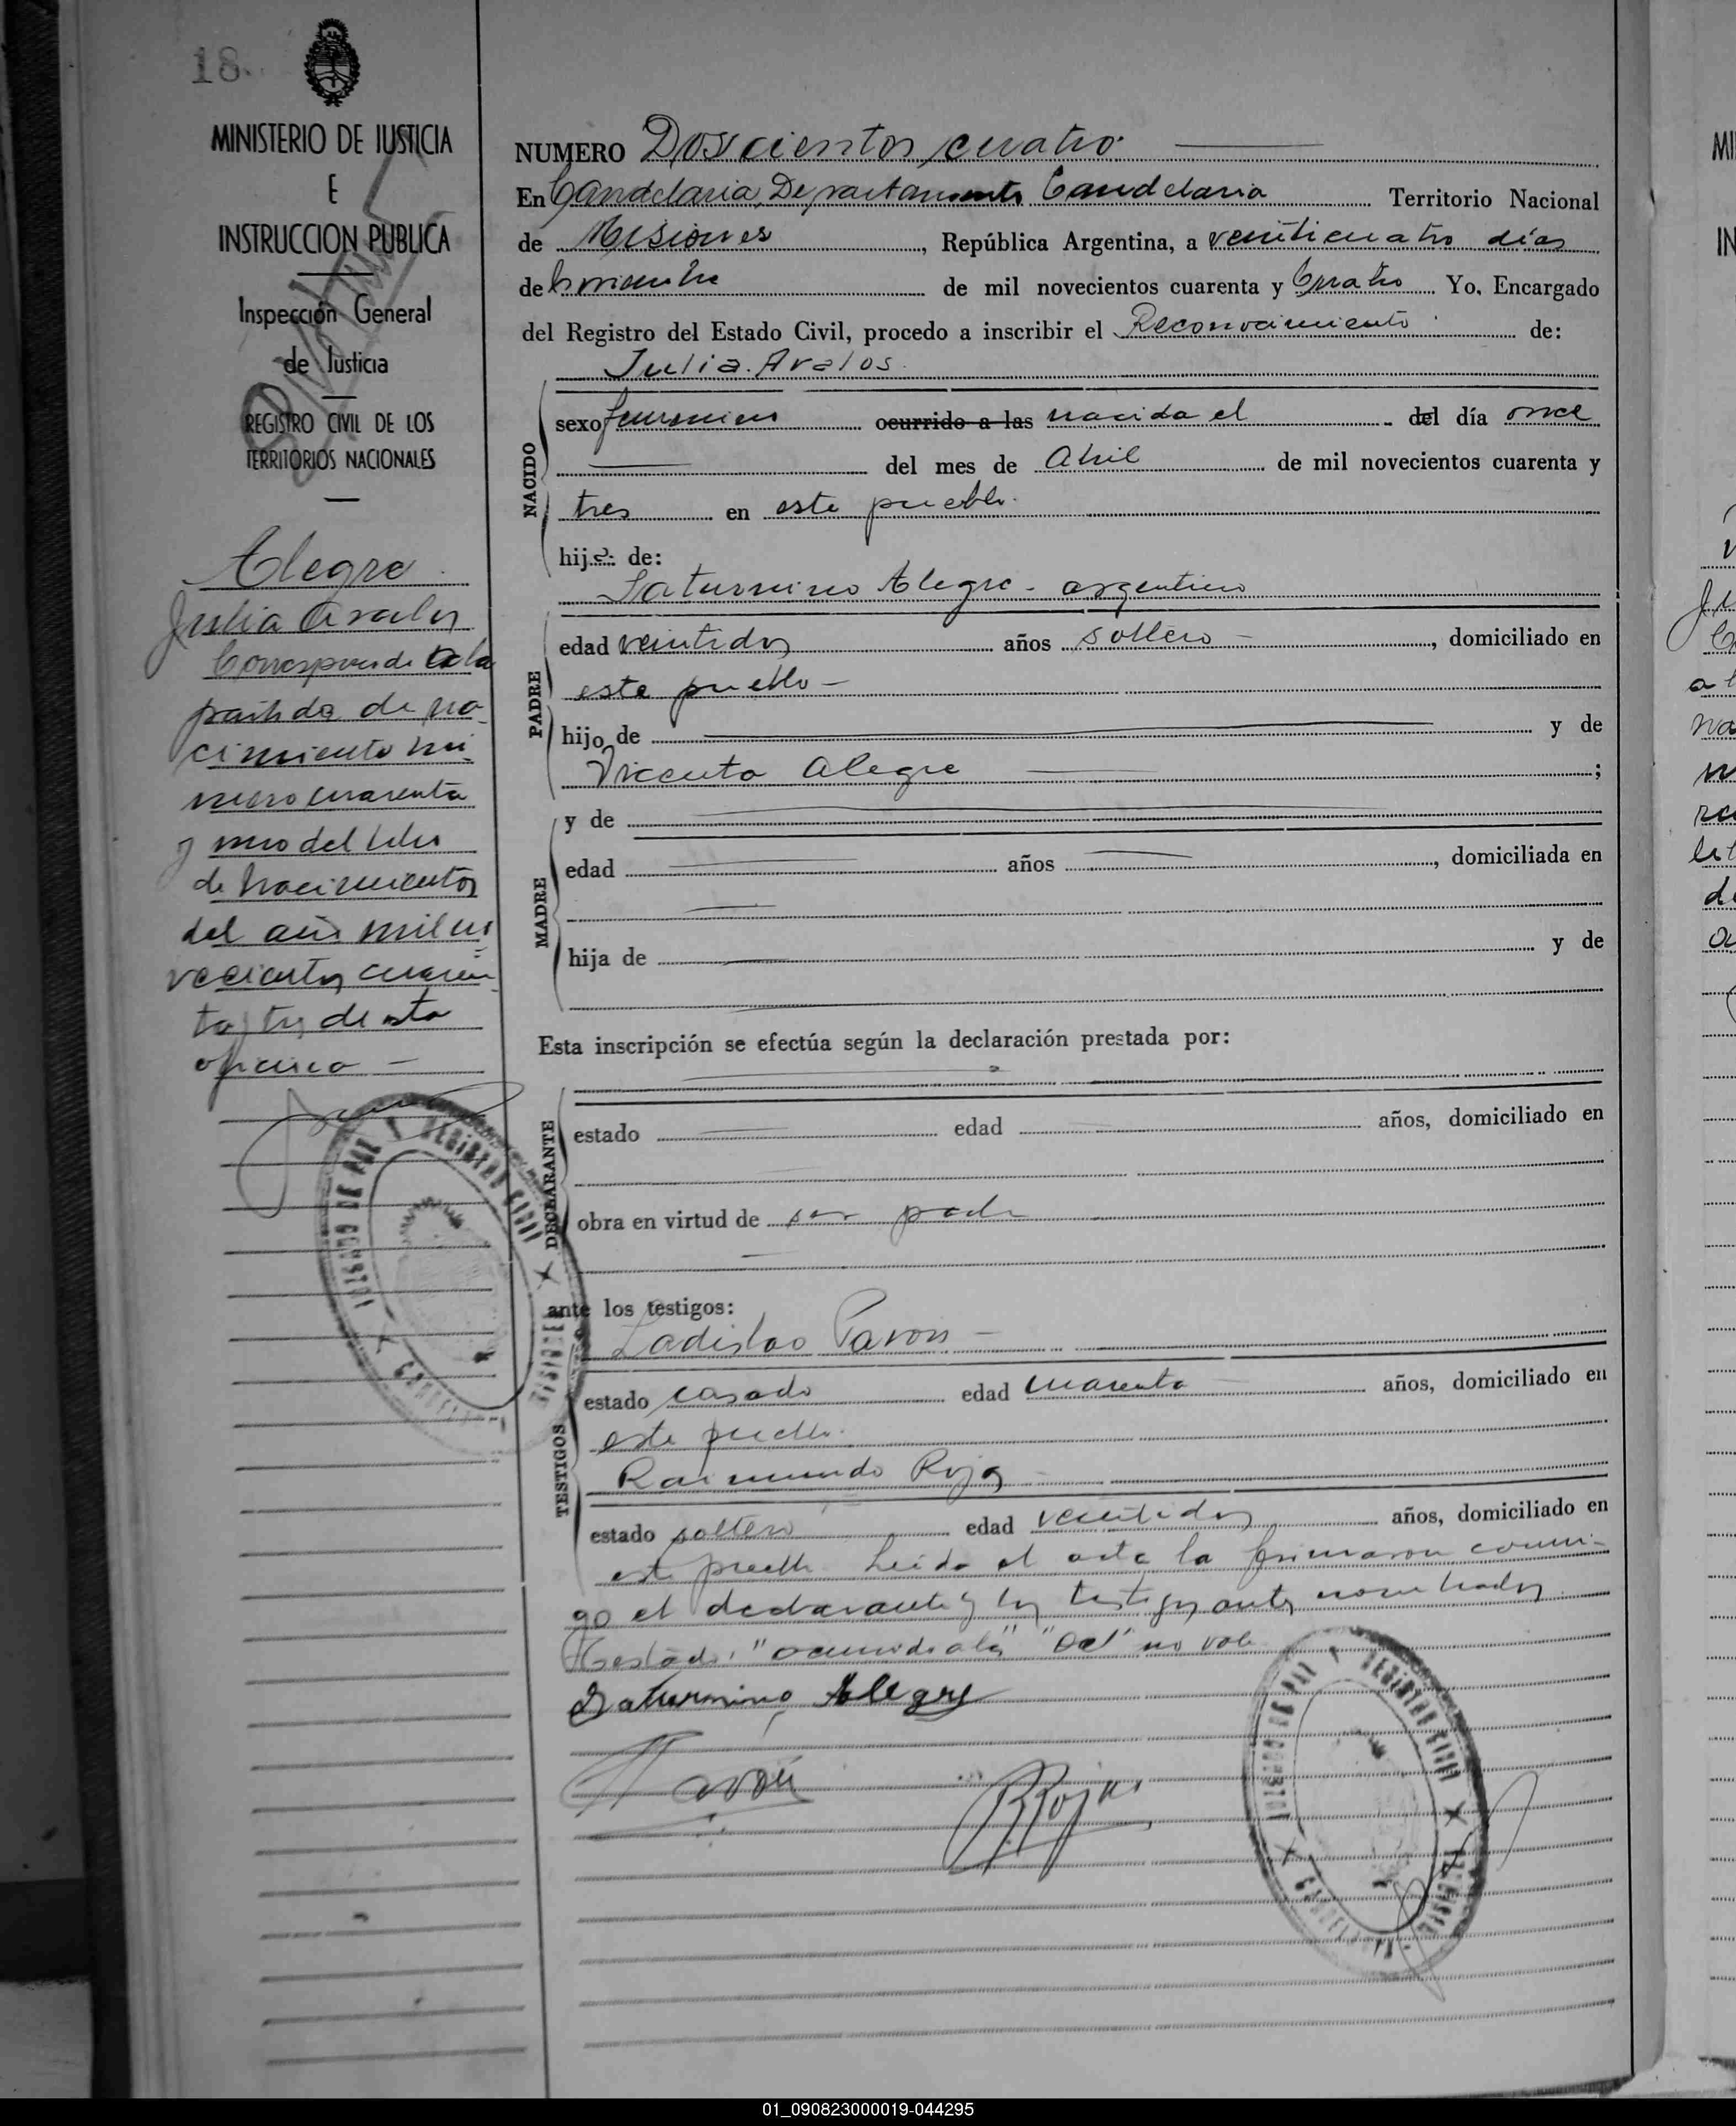 18
MINISTERIO DE JUSTICIA
E
INSTRUCCION PUBLICA
Inspección General
de Justicia
REGISTRO CIVIL DE LOS
TERRITORIOS NACIONALES
Alegre
Julia Avalos
Corresponde a la
partida de na-
cimiento nú-
mero cuarenta
y uno del libro
de Nacimientos
del año mil no
vecientos cuaren
ta y tres de esta
oficina —
NUMERO Doscientos cuatro
En Candelaria, Departamento Candelaria Territorio Nacional
de Misiones, República Argentina, a veinticuatro días
de Noviembre de mil novecientos cuarenta y Cuatro Yo, Encargado
del Registro del Estado Civil, procedo a inscribir el Reconocimiento de:
Julia Avalos
NACIDO
sexo femenino ocurrido a las nacida el del día once
del mes de Abril de mil novecientos cuarenta y
tres en este pueblo.
hija de:
Saturnino Alegre - argentino
PADRE
edad veintidos años soltero -, domiciliado en
este pueblo -
hijo de y de
Vicenta Alegre ;
MADRE
y de
edad años , domiciliada en
hija de y de
Esta inscripción se efectúa según la declaración prestada por:
DECLARANTE
estado edad años, domiciliado en
obra en virtud de ser padre
ante los testigos:
TESTIGOS
Ladislao Pavon -
estado casado edad cuarenta años, domiciliado en
este pueblo.
Raimundo Rojas
estado soltero edad veintidos años, domiciliado en
este pueblo Leida el acta la firmaron conmi-
go el declarante y los testigos antes nombrados
Testado: "ocurrido a las" "del" no vale
Saturnino Alegre
Pavón
R Rojas
JUZGADO DE PAZ Y REGISTRO CIVIL
CANDELARIA
MISIONES
01_090823000019-044295